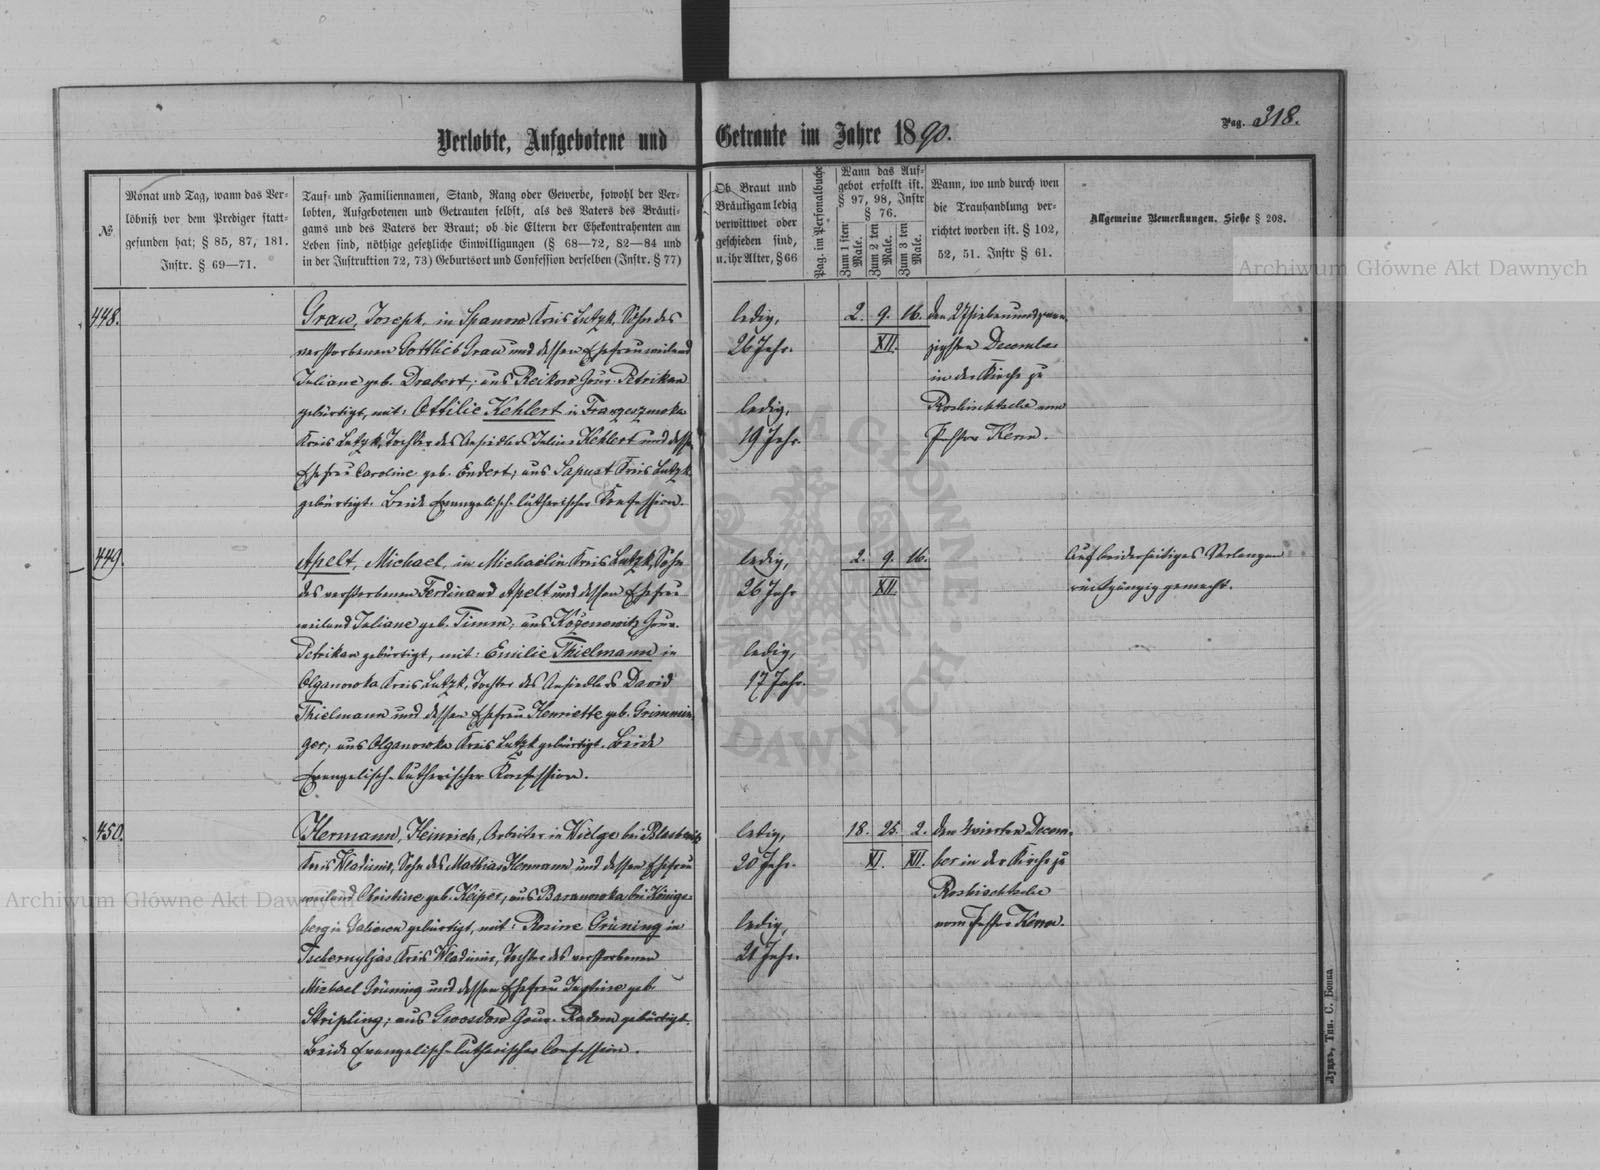 Pag. 318.
Verlobte, Aufgebotene und Getraute im Jahre 1890.
№
Monat und Tag, wann das Ver-
löbniß vor dem Prediger statt-
gefunden hat; § 85, 87, 181.
Instr. § 69—71.
Tauf- und Familiennamen, Stand, Rang oder Gewerbe, sowohl der Ver-
lobten, Aufgebotenen und Getrauten selbst, als des Vaters des Bräuti-
gams und des Vaters der Braut; ob die Eltern der Ehekontrahenten am
Leben sind, nöthige gesetzliche Einwilligungen (§ 68—72, 82—84 und
in der Instruktion 72, 73) Geburtsort und Confession derselben (Instr. § 77)
Ob Braut und
Bräutigam ledig
verwittwet oder
geschieden sind,
u. ihr Alter, § 66
Pag. im Personalbuche
Wann das Auf-
gebot erfolkt ist.
§ 97, 98, Instr
§ 76.
Zum 1 sten Male.
Zum 2 ten Male.
Zum 3 ten Male.
Wann, wo und durch wen
die Trauhandlung ver-
richtet worden ist. § 102,
52, 51. Instr § 61.
Allgemeine Bemerkungen. Siehe § 208.
448.
Grau, Joseph, in Spanow Kreis Lutzk, Sohn des
verstorbenen Gottlieb Grau und dessen Ehefrau weiland
Juliane geb. Drabert; aus Reikow Gouv. Petrikau
gebürtigt, mit: Ottilie Kehlert in
Kreis Lutzk, Tochter des Ansiedlers Julius Kehlert und dessen
Ehefrau Caroline geb. Endert; aus Sapust Kreis Lutzk
gebürtigt. Beide Evangelisch-lutherischer Konfession.
ledig,
26 Jahr.
ledig,
19 Jahr.
2. 9. 16.
XII.
den 27 siebenundzwan-
zigsten December
in der Kirche zu
Roshischtsche vom
Pastor Kerm.
449.
Apelt, Michael, in Michaelin Kreis Lutzk, Sohn
des verstorbenen Ferdinand Apelt und dessen Ehefrau
weiland Juliane geb. Timm; aus Gouv.
Petrikau gebürtigt, mit: Emilie Thielmann in
Olganowka Kreis Lutzk, Tochter des Ansiedlers David
Thielmann und dessen Ehefrau Henriette geb. Grimmin-
ger; aus Olganowka Kreis Lutzk gebürtigt. Beide
Evangelisch-lutherischer Konfession.
ledig,
26 Jahr
ledig,
17 Jahr.
2. 9. 16.
XII.
Auf beiderseitiges Verlangen
rückgängig gemacht.
450.
Hermann, Heinrich, Arbeiter in Wielge bei
Kreis Wladimir, Sohn des Mathias Hermann und dessen Ehefrau
weiland Christine geb. Keiper, aus Baranowka bei Königs-
berg in Galizien gebürtigt, mit: Rosine Grüning in
Tschernyljas Kreis Wladimir, Tochter des verstorbenen
Michael Grüning und dessen Ehefrau Justine geb.
Stripling; aus Gouv. Radom gebürtigt.
Beide Evangelisch-lutherischer Confession.
ledig,
20 Jahr.
ledig,
21 Jahr.
18. 25. 2.
XI. XII.
den 4 vierten Decem-
ber in der Kirche zu
Roshischtsche
vom Pastor Kerm.
Луцкъ, Тип. С. Бонка
Archiwum Główne Akt Dawnych
Archiwum Główne Akt Dawnych